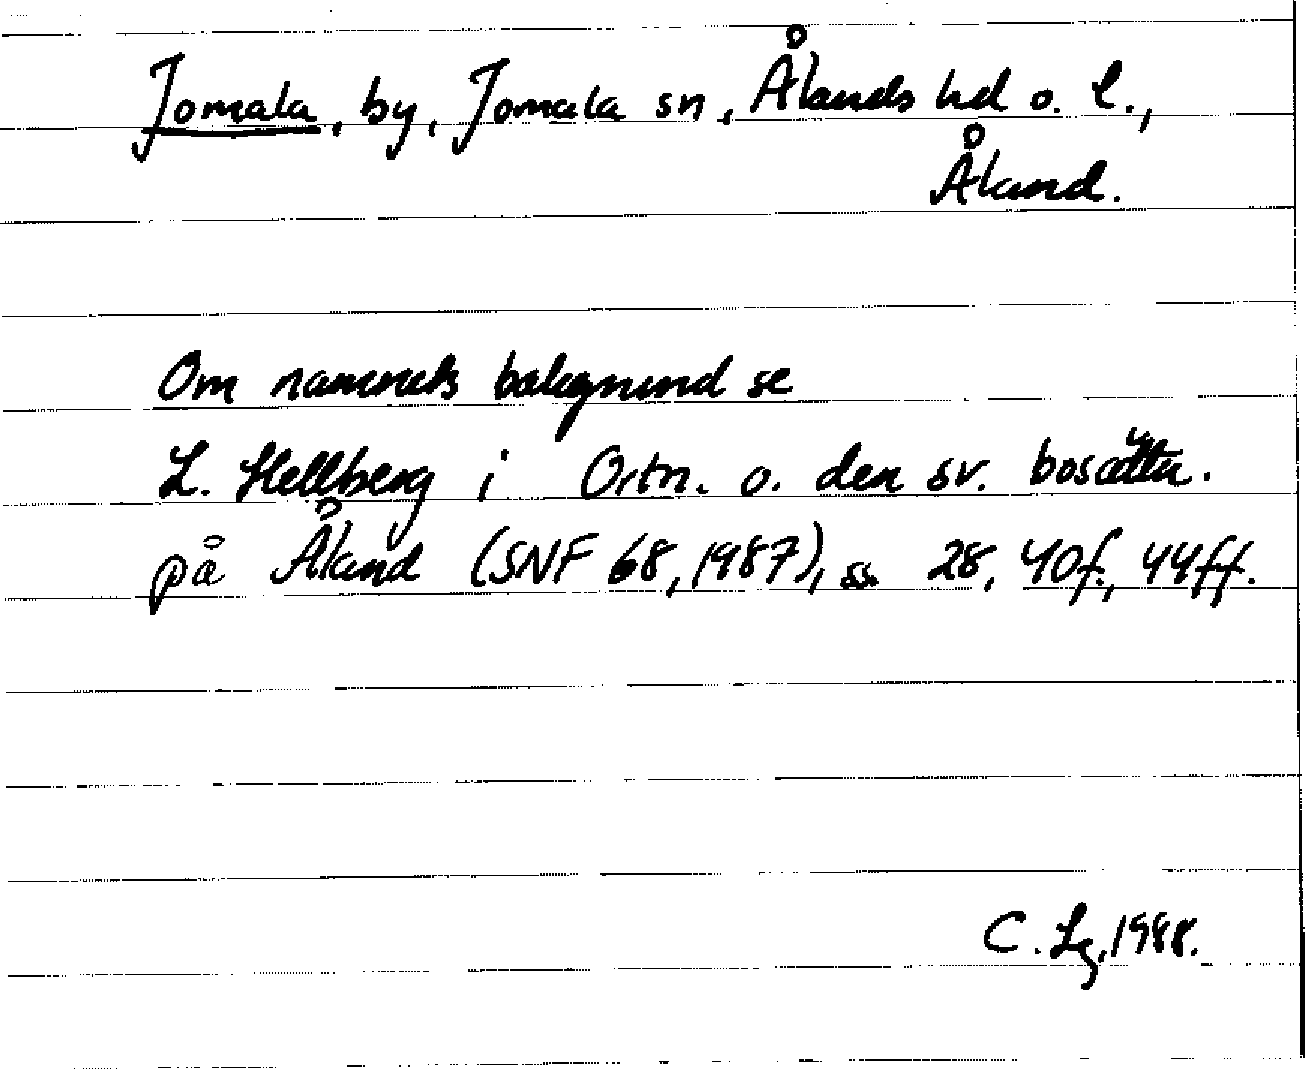 Jomala, by, Jomala sn, Ålands hd o. l.,
Åland.
Om namnets bakgrund se
L. Hellberg i Ortn. o. den sv. bosättn.
på Åland (SNF 68, 1987), ss. 28, 40f., 44ff.
C. Lg, 1988.